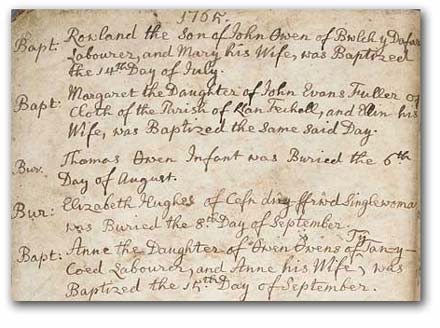 1765.
Bapt. Rowland the son of John Owen of Bwlch y Dafar
Labourer, and Mary his Wife, was Baptized
the 14th Day of July.
Bapt: Margaret the Daughter of John Evans Fuller of
Cloth of the Parish of Llan Fechell, and Ellin his
Wife, was Baptized the same said Day.
Bur. Thomas Owen Infant was Buried the 6th
Day of August.
Bur: Elizabeth Hughes of Cefn ffrwd Singlewoman
was Buried the 8th Day of September.
Bapt: Anne the Daughter of Owen Owens of Ty'tan-y-
Coed Labourer, and Anne his Wife, was
Baptized the 15th Day of September.